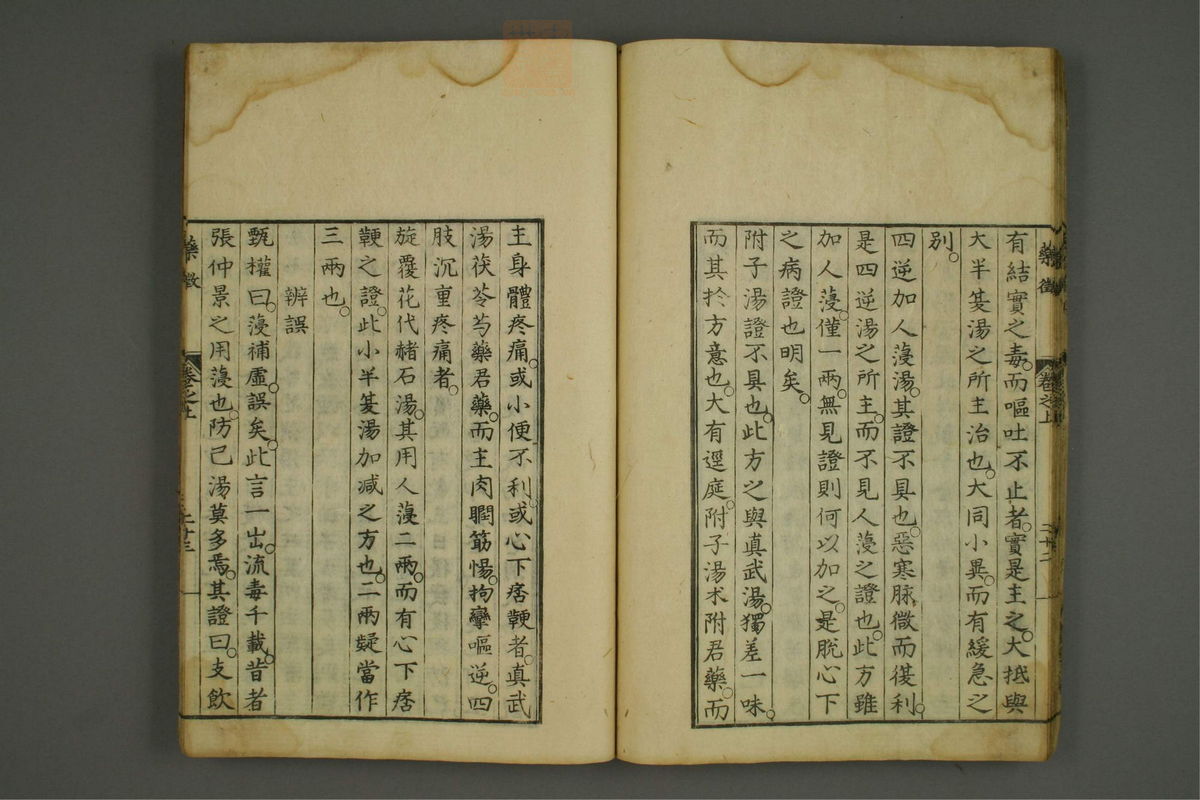 有結實之毒。而嘔吐不止者。實是主之。大抵與
大半夏湯之所主治也。大同小異。而有緩急之
別。
四逆加人薓湯。其證不具也。惡寒脉微而復利。
是四逆湯之所主。而不見人薓之證也。此方雖
加人薓僅一兩。無見證則何以加之。是脫心下
之病證也明矣。
附子湯證不具也。此方之與眞武湯。獨差一味。
而其於方意也。大有逕庭。附子湯朮附君藥。而
主身體疼痛。或小便不利。或心下痞鞕者。眞武
湯茯苓芍藥君藥。而主肉瞤筋惕。拘攣嘔逆。四
肢沉重疼痛者。
旋覆花代赭石湯。其用人薓二兩。而有心下痞
鞕之證。此小半夏湯加减之方也。二兩疑當作
三兩也。
辨誤
甄權曰。薓補虛。誤矣。此言一出。流毒千載。昔者
張仲景之用薓也。防己湯莫多焉。其證曰。支飲
藥徵 卷之上 二十二
藥徵 卷之上 二十三